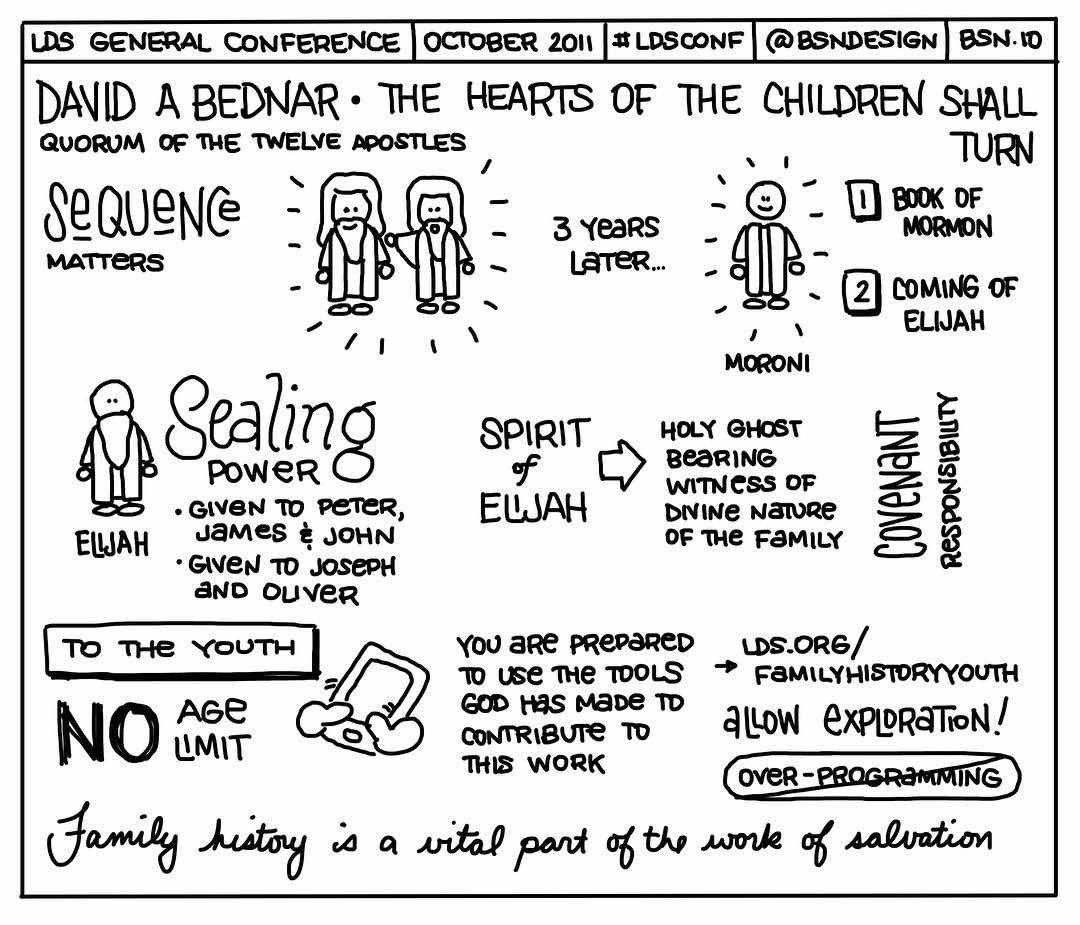 LDS GENERAL CONFERENCE OCTOBER 2011 #LDSCONF @BSNDESIGN BSN.IO
DAVID A BEDNAR • THE HEARTS OF THE CHILDREN SHALL
TURN
QUORUM OF THE TWELVE APOSTLES
SEQUENCE
MATTERS
3 YEARS
LATER...
MORONI
1 BOOK OF
MORMON
2 COMING OF
ELIJAH
ELIJAH
Sealing
POWER
• GIVEN TO PETER,
JAMES & JOHN
• GIVEN TO JOSEPH
AND OLIVER
SPIRIT
of
ELIJAH
HOLY GHOST
BEARING
WITNESS OF
DIVINE NATURE
OF THE FAMILY
COVENANT
RESPONSIBILITY
TO THE YOUTH
NO AGE
LIMIT
YOU ARE PREPARED
TO USE THE TOOLS
GOD HAS MADE TO
CONTRIBUTE TO
THIS WORK
→ LDS.ORG/
FAMILYHISTORYYOUTH
ALLOW EXPLORATION!
OVER-PROGRAMMING
Family history is a vital part of the work of salvation